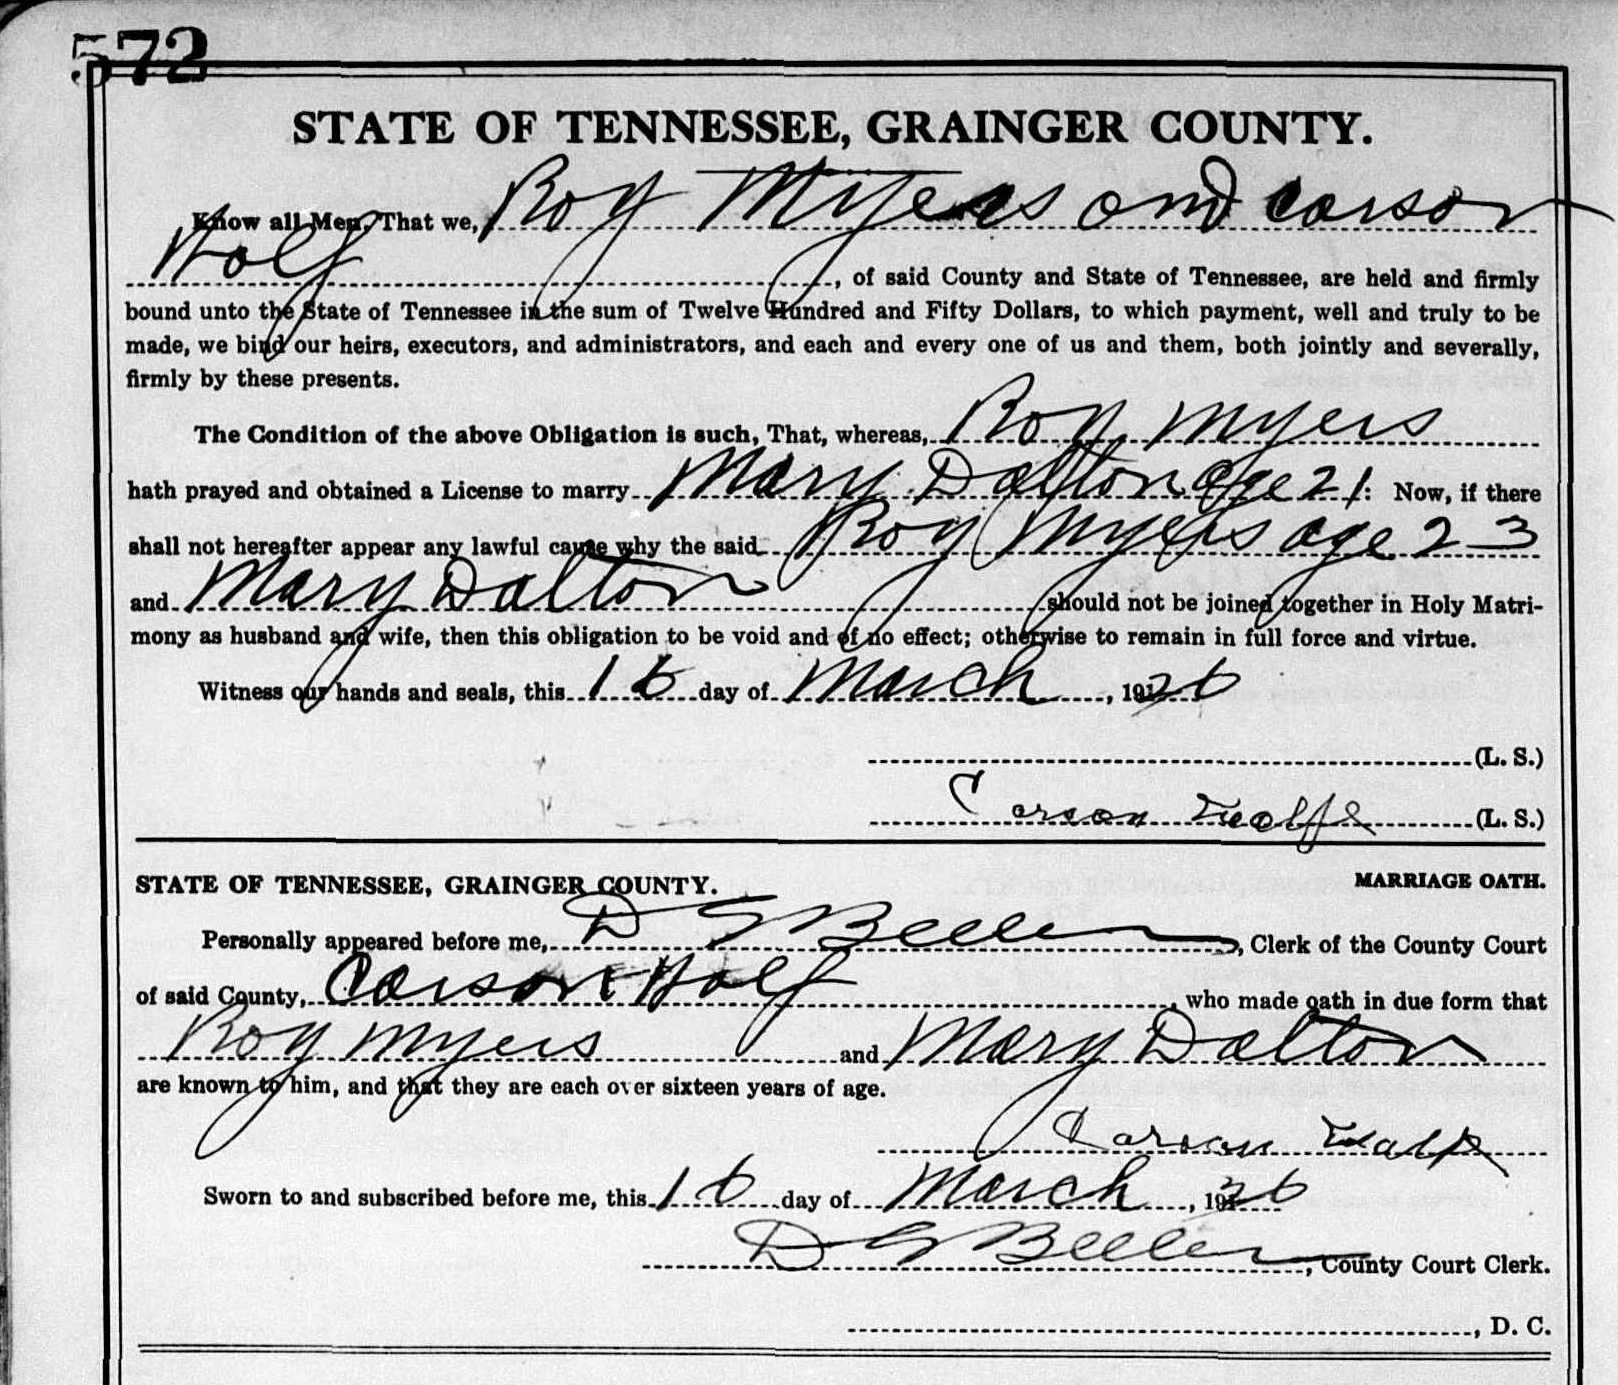 572
STATE OF TENNESSEE, GRAINGER COUNTY.
Know all Men, That we, Roy Myers and Carson
Wolf, of said County and State of Tennessee, are held and firmly
bound unto the State of Tennessee in the sum of Twelve Hundred and Fifty Dollars, to which payment, well and truly to be
made, we bind our heirs, executors, and administrators, and each and every one of us and them, both jointly and severally,
firmly by these presents.
The Condition of the above Obligation is such, That, whereas, Roy Myers
hath prayed and obtained a License to marry Mary Dalton age 21: Now, if there
shall not hereafter appear any lawful cause why the said Roy Myers age 23
and Mary Dalton should not be joined together in Holy Matri-
mony as husband and wife, then this obligation to be void and of no effect; otherwise to remain in full force and virtue.
Witness our hands and seals, this 16 day of March, 1926
(L. S.)
Carson Wolfe (L. S.)
STATE OF TENNESSEE, GRAINGER COUNTY. MARRIAGE OATH.
Personally appeared before me, D G Beeler, Clerk of the County Court
of said County, Carson Wolf, who made oath in due form that
Roy Myers and Mary Dalton
are known to him, and that they are each over sixteen years of age.
Carson Wolfe
Sworn to and subscribed before me, this 16 day of March, 1926
D G Beeler, County Court Clerk.
, D. C.